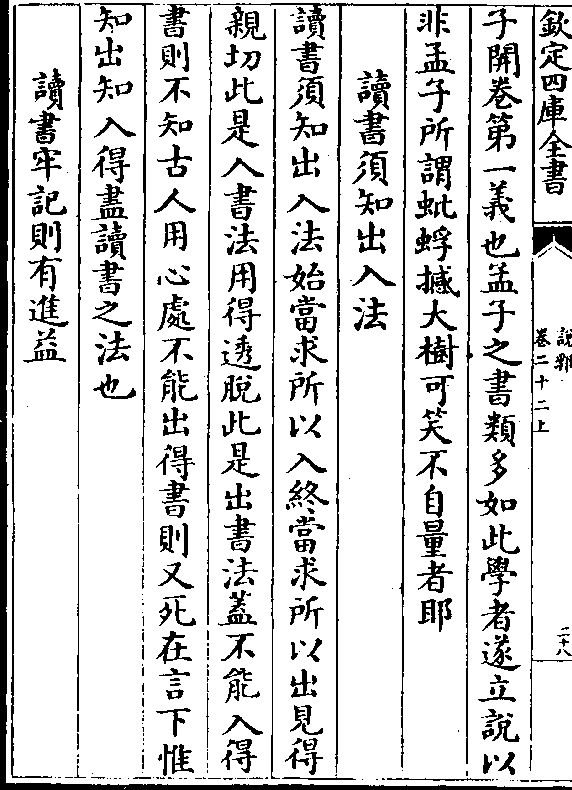 欽定四庫全書
說郛
卷二十二上
二十八
子開卷第一義也孟子之書類多如此學者遂立說以
非孟子所謂蚍蜉撼大樹可笑不自量者耶
讀書須知出入法
讀書須知出入法始當求所以入終當求所以出見得
親切此是入書法用得透脫此是出書法蓋不能入得
書則不知古人用心處不能出得書則又死在言下惟
知出知入得盡讀書之法也
讀書牢記則有進益